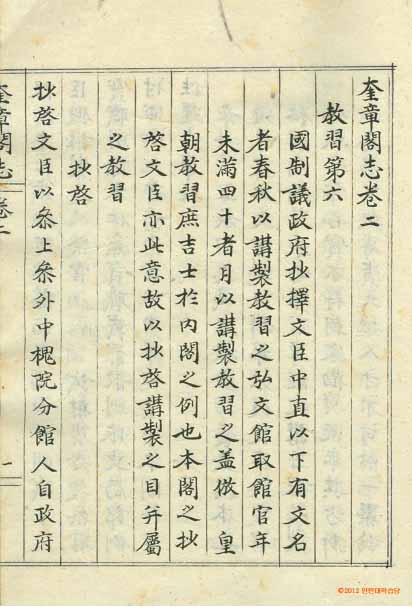 奎章閣志卷二
教習第六
國制議政府抄擇文臣中直以下有文名
者春秋以講製教習之弘文館取館官年
未滿四十者月以講製教習之盖倣 皇
朝教習庶吉士於內閣之例也本閣之抄
啓文臣亦此意故以抄啓講製之目幷屬
之教習
抄啓
抄啓文臣以參上參外中槐院分館人自政府
奎章閣志 卷二
一
©2012